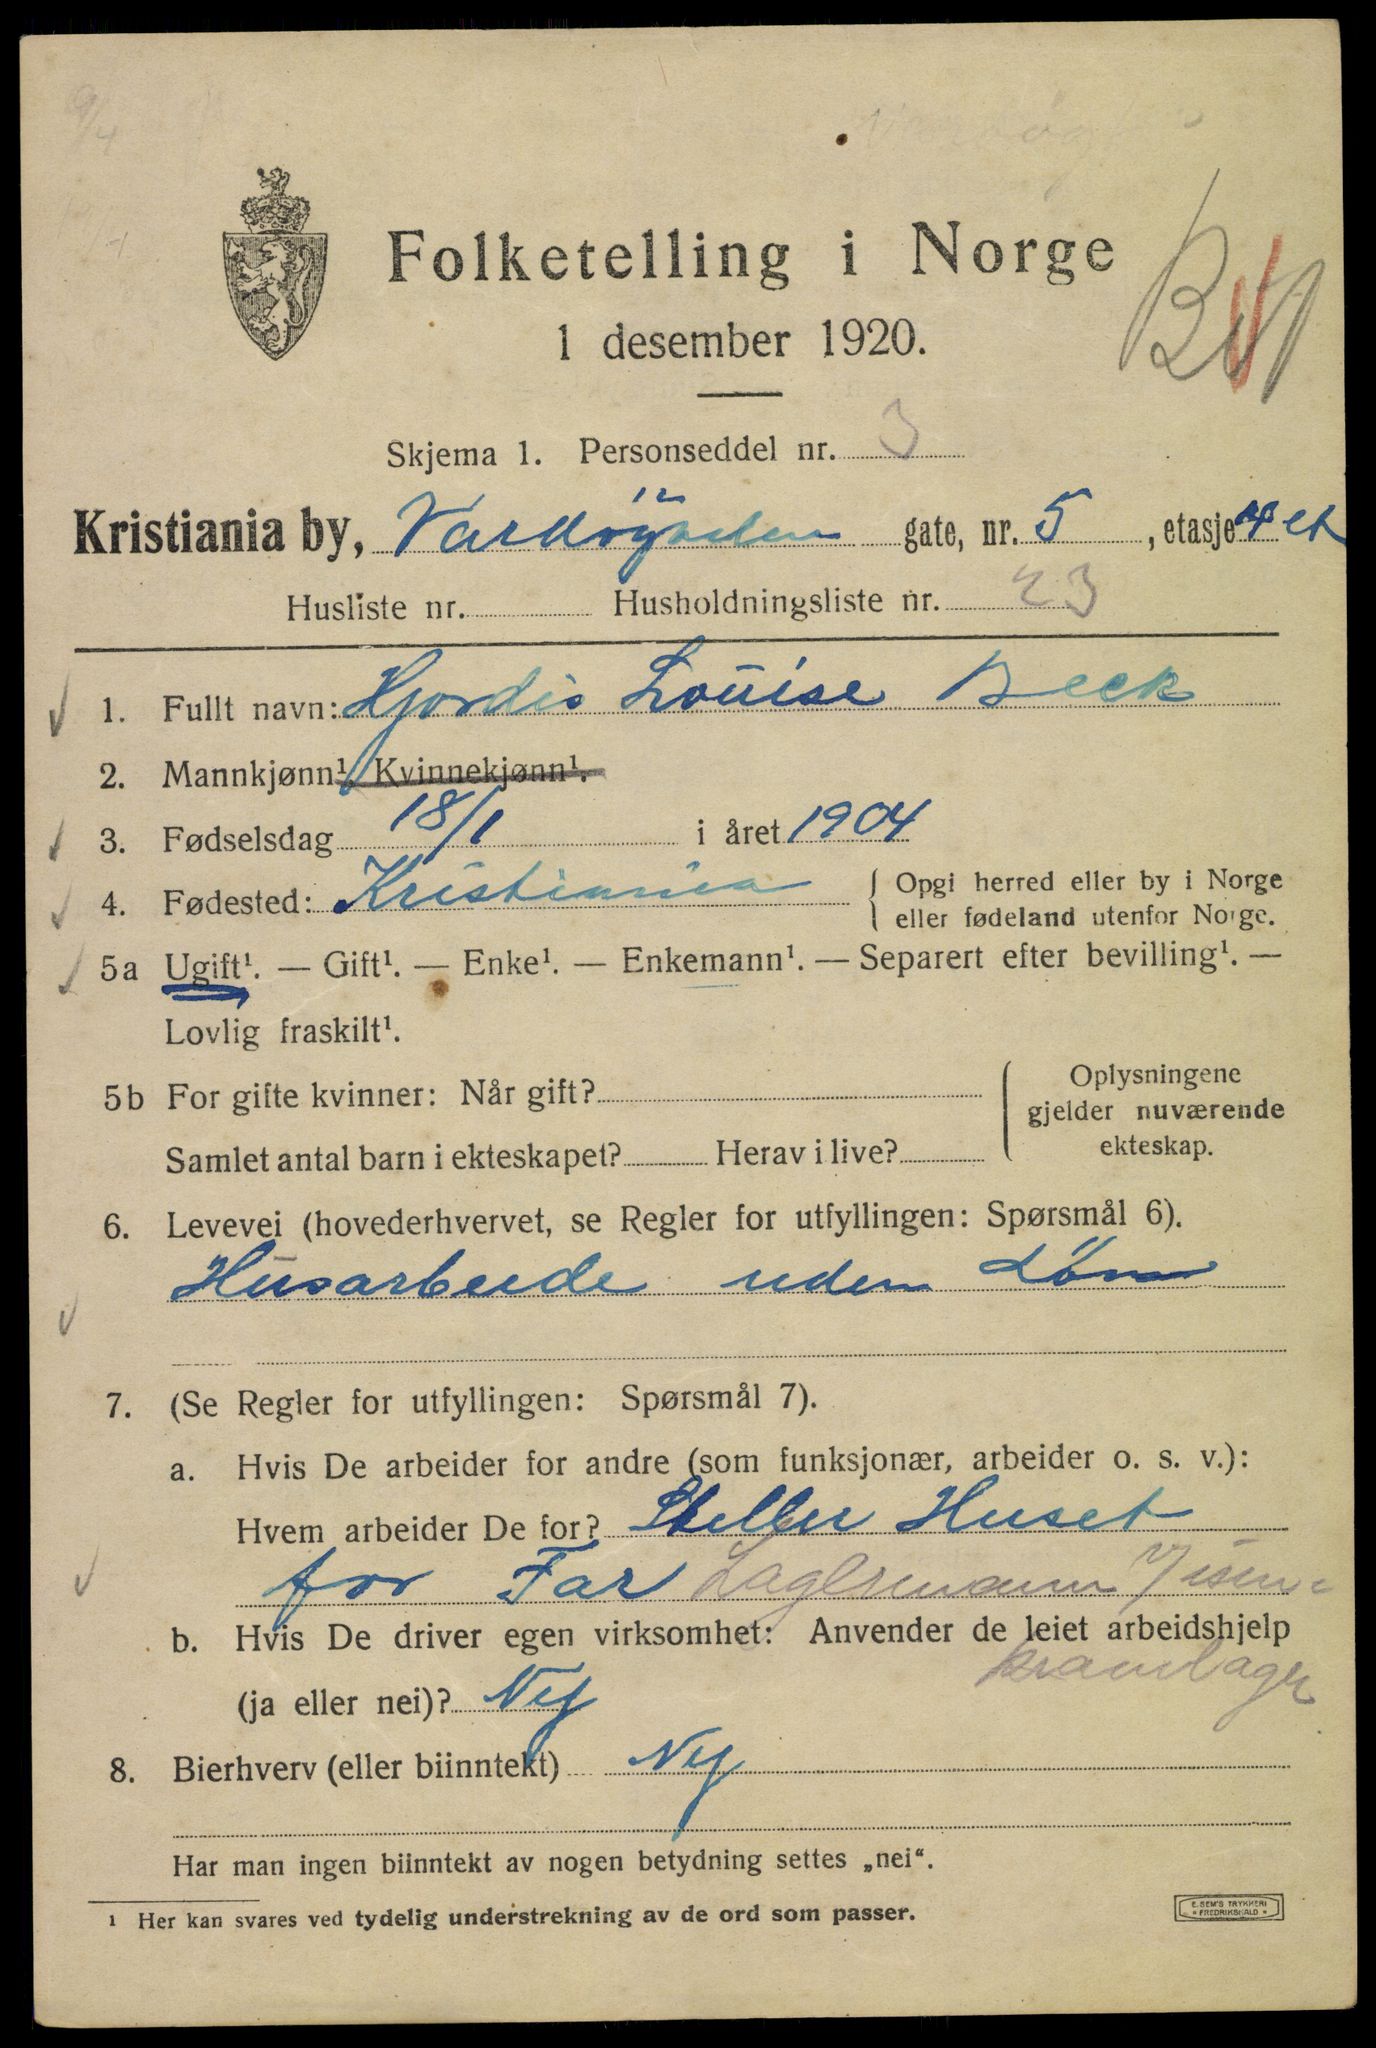 9/4
Folketelling i Norge
1 desember 1920.
Skjema 1. Personseddel nr. 3
Kristiania by, Vardøgaden gate, nr. 5, etasje 4 et
Husliste nr. Husholdningsliste nr. 23
1. Fullt navn: Hjordis Louise Beck
2. Mannkjønn¹. Kvinnekjønn¹.
3. Fødselsdag 18/1 i året 1904
4. Fødested: Kristiania { Opgi herred eller by i Norge
eller fødeland utenfor Norge.
5a Ugift¹. — Gift¹. — Enke¹. — Enkemann¹. — Separert efter bevilling¹. —
Lovlig fraskilt¹.
5b For gifte kvinner: Når gift? { Oplysningene
gjelder nuværende
Samlet antal barn i ekteskapet? Herav i live? ekteskap.
6. Levevei (hovederhvervet, se Regler for utfyllingen: Spørsmål 6).
Husarbeide uden Løn
7. (Se Regler for utfyllingen: Spørsmål 7).
a. Hvis De arbeider for andre (som funksjonær, arbeider o. s. v.):
Hvem arbeider De for? Steller Huset
for Far Lagermann Jisen=
b. Hvis De driver egen virksomhet: Anvender de leiet arbeidshjelp
kramlager
(ja eller nei)? Nej
8. Bierhverv (eller biinntekt) Nej
Har man ingen biinntekt av nogen betydning settes „nei“.
¹ Her kan svares ved tydelig understrekning av de ord som passer.
E. SEM'S TRYKKERI
* FREDRIKSHALD *